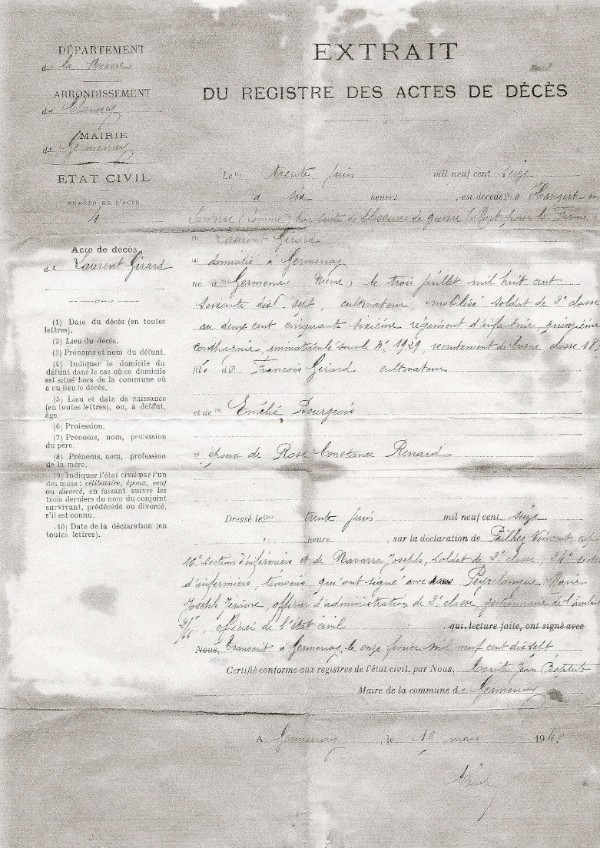 DÉPARTEMENT
de la Nièvre
ARRONDISSEMENT
de Clamecy
MAIRIE
de Germenay
ETAT CIVIL
NUMÉRO DE L'ACTE
4
Acte de décès
de Laurent Girard
(1) Date du décès (en toutes
lettres).
(2) Lieu du décès.
(3) Prénoms et nom du défunt.
(4) Indiquer le domicile du
défunt dans le cas où ce domicile
est situé hors de la commune où
a eu lieu le décès.
(5) Lieu et date de naissance
(en toutes lettres), ou, à défaut,
âge.
(6) Profession.
(7) Prénoms, nom, profession
du père.
(8) Prénoms, nom, profession
de la mère.
(9) Indiquer l'état civil par l'un
des mots : célibataire, époux, veuf
ou divorcé, en faisant suivre les
trois derniers du nom du conjoint
survivant, prédécédé ou divorcé,
s'il est connu.
(10) Date de la déclaration (en
toutes lettres).
EXTRAIT
DU REGISTRE DES ACTES DE DÉCÈS
Le trente juin mil neuf cent seize
à six heures, est décédé à Hangest en
Santerre (Somme) suite de blessures de guerre Mort pour la France
Laurent Girard
domicilié à Germenay
né à Germenay Nièvre, le trois juillet mil huit cent
soixante dix-sept, cultivateur, mobilisé soldat de 2e classe
au deux cent cinquante sixième régiment d'infanterie, quinzième
compagnie, immatricule sous le N° 1929, recrutement de classe 18
fils de François Girard cultivateur
et de Emélie Bourgeois
époux de Rose Constance Renard
Dressé le trente juin mil neuf cent seize
heure, sur la déclaration de Vincent
16e section d'infirmiers et de Navarre Joseph, soldat de 2e classe, 24e section
d'infirmiers, témoins, qui ont signé avec Peyrelongue Marie
Joseph officier d'administration de 2e classe, gestionnaire de l'ambulance
officier de l'état civil qui, lecture faite, ont signé avec
Nous, Transcrit à Germenay, le onze février mil neuf cent dix sept
Certifié conforme aux registres de l'état civil, par Nous, Jean
Maire de la commune de Germenay
A Germenay, le mars 194